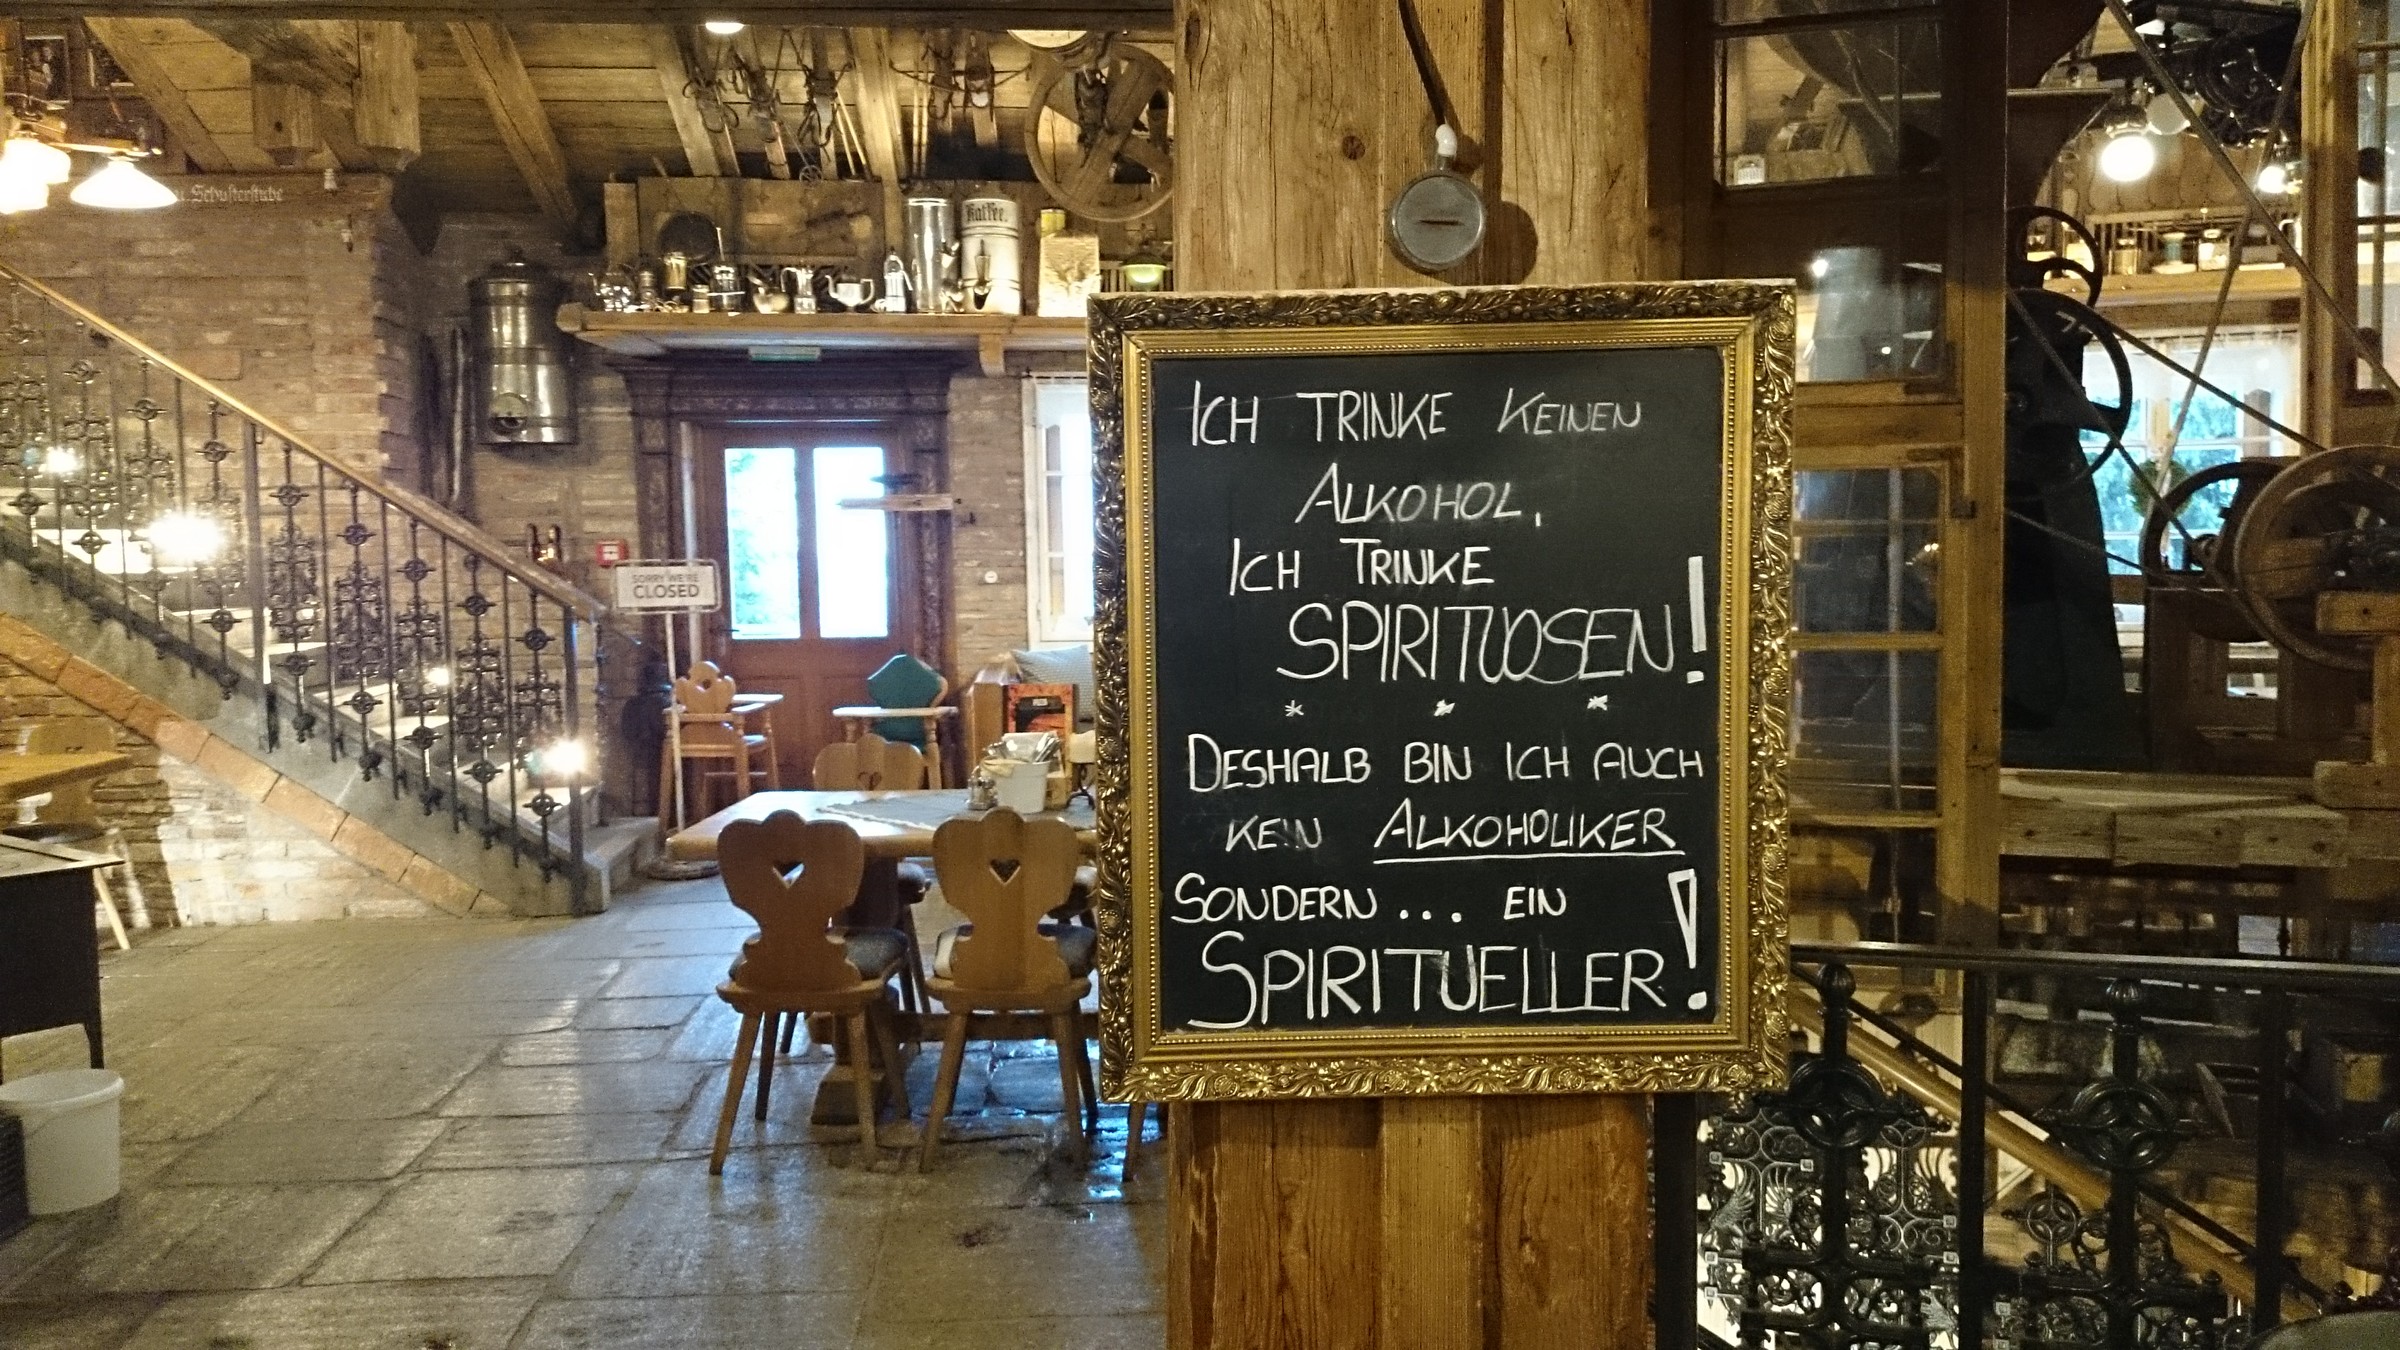 u. Schusterstube
Kaffee.
SORRY WE'RE
CLOSED
ICH TRINKE KEINEN
ALKOHOL,
ICH TRINKE
SPIRITUOSEN!
* * *
DESHALB BIN ICH AUCH
KEIN ALKOHOLIKER
SONDERN... EIN
SPIRITUELLER!